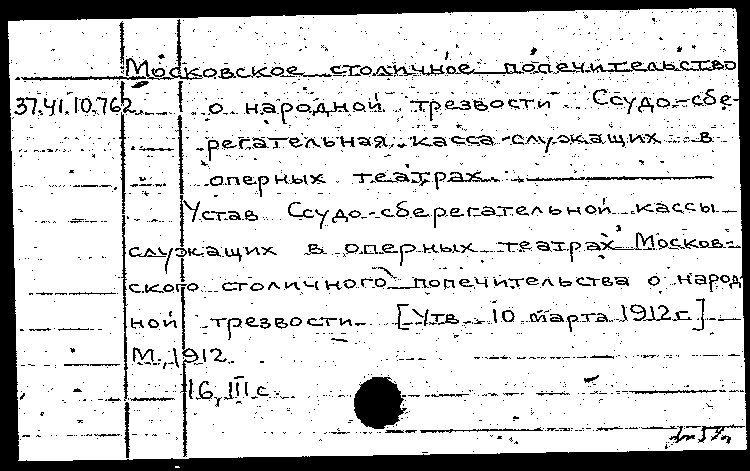 Московское столичное попечительство
37.41.10.762 о народной трезвости Ссудо-сбе-
регательная касса служащих в
оперных театрах.
Устав Ссудо-сберегательной кассы
служащих в оперных театрах Москов-
ского столичного попечительства о народ
ной трезвости [Утв. 10 марта 1912 г.]
М., 1912.
16, III с.